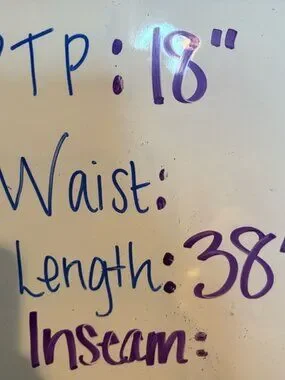 PTP: 18"
Waist:
Length: 38"
Inseam: